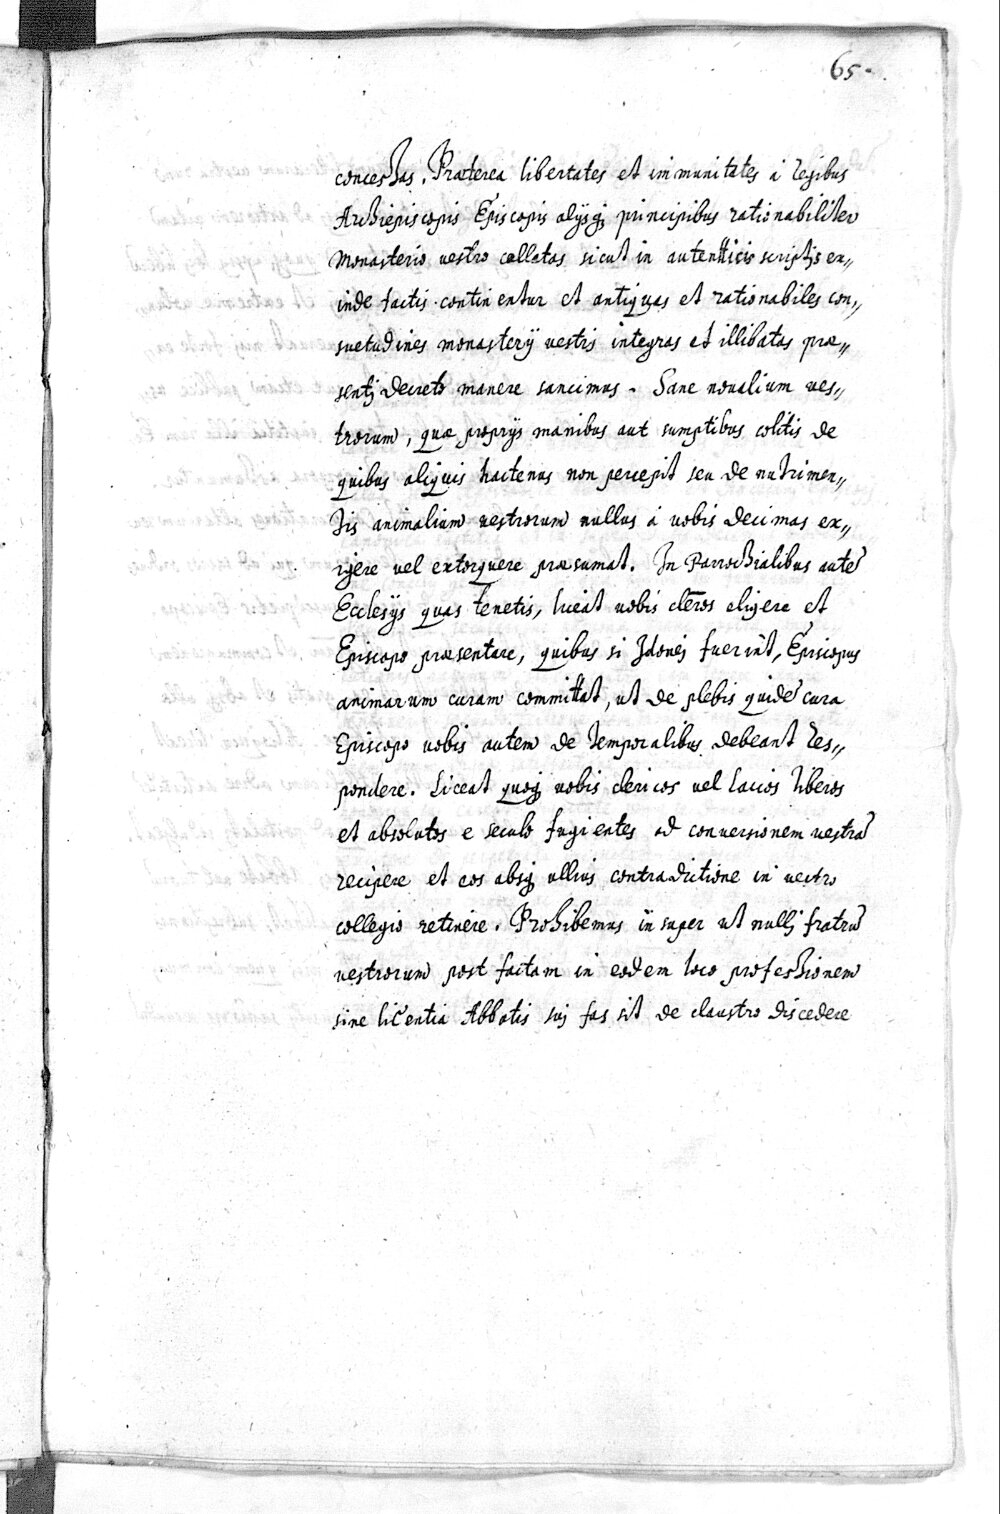 65.
concessas. Præterea libertates et immunitates á regibus
Archiepiscopis Episcopis alijsq; principibus rationabiliter
monasterio vestro collatas sicut in autenticis scriptis ex„
inde factis continentur et antiquas et rationabiles con„
suetudines monasterij vestris integras et illibatas præ„
sentj decreto manere sancimus. Sane novalium ves„
trorum, quæ proprijs manibus aut sumptibus colitis de
quibus aliquis hactenus non percepit seu de nutrimen„
tis animalium vestrorum nullus á vobis decimas ex„
igere vel extorquere præsumat. In Parrochialibus autē
Ecclesijs quas tenetis, liceat vobis cleros eligere et
Episcopo præsentare, quibus si Idonej fuerint, Episcopus
animarum curam committat, ut de plebis quidē cura
Episcopo vobis autem de temporalibus debeant res„
pondere. Liceat quoq; vobis clericos vel laicos liberos
et absolutos e seculo fugientes ad conversionem vestrā
recipere et eos absq; ullius contradictione in vestro
collegio retinere. Prohibemus insuper ut nullj fratrū
vestrorum post factam in eodem loco professionem
sine licentia Abbatis suj fas sit de claustro discedere